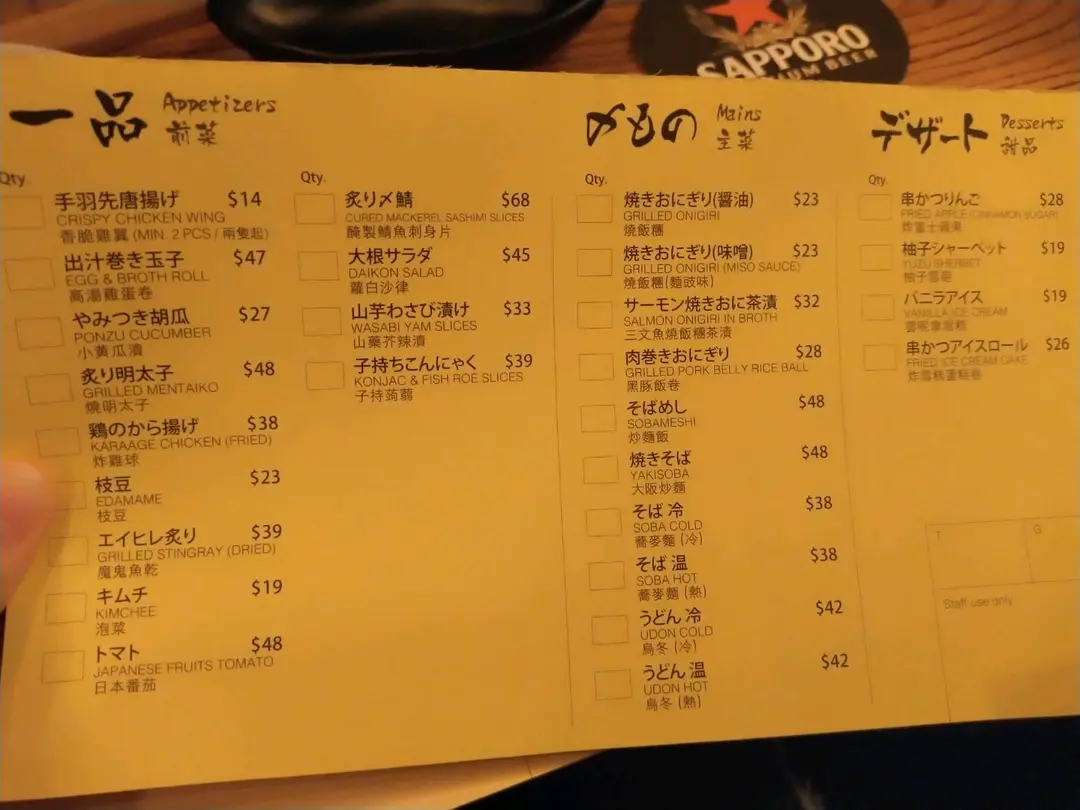 SAPPORO
一品 Appetizers
前菜
Qty.
手羽先唐揚げ $14
CRISPY CHICKEN WING
香脆雞翼 (MIN. 2 PCS / 兩隻起)
出汁巻き玉子 $47
EGG & BROTH ROLL
高湯雞蛋卷
やみつき胡瓜 $27
PONZU CUCUMBER
小黄瓜漬
炙り明太子 $48
GRILLED MENTAIKO
燒明太子
鶏のから揚げ $38
KARAAGE CHICKEN (FRIED)
炸雞球
枝豆 $23
EDAMAME
枝豆
エイヒレ炙り $39
GRILLED STINGRAY (DRIED)
魔鬼魚乾
キムチ $19
KIMCHEE
泡菜
トマト $48
JAPANESE FRUITS TOMATO
日本番茄
Qty.
炙り〆鯖 $68
CURED MACKEREL SASHIMI SLICES
醃製鯖魚刺身片
大根サラダ $45
DAIKON SALAD
蘿白沙律
山芋わさび漬け $33
WASABI YAM SLICES
山藥芥辣漬
子持ちこんにゃく $39
KONJAC & FISH ROE SLICES
子持蒟蒻
〆もの Mains
主菜
Qty.
焼きおにぎり(醤油) $23
GRILLED ONIGIRI
燒飯糰
焼きおにぎり(味噌) $23
GRILLED ONIGIRI (MISO SAUCE)
燒飯糰(麵豉味)
サーモン焼きおに茶漬 $32
SALMON ONIGIRI IN BROTH
三文魚燒飯糰茶漬
肉巻きおにぎり $28
GRILLED PORK BELLY RICE BALL
黑豚飯卷
そばめし $48
SOBAMESHI
炒麵飯
焼きそば $48
YAKISOBA
大阪炒麵
そば 冷 $38
SOBA COLD
蕎麥麵 (冷)
そば 温 $38
SOBA HOT
蕎麥麵 (熱)
うどん 冷 $42
UDON COLD
烏冬 (冷)
うどん 温 $42
UDON HOT
烏冬 (熱)
デザート Desserts
甜品
Qty.
串かつりんご $28
FRIED APPLE (CINNAMON SUGAR)
炸富士蘋果
柚子シャーベット $19
YUZU SHERBET
柚子雪葩
バニラアイス $19
VANILLA ICE CREAM
雲呢拿雪糕
串かつアイスロール $26
FRIED ICE CREAM CAKE
炸雪糕蛋糕卷
T G
Staff use only